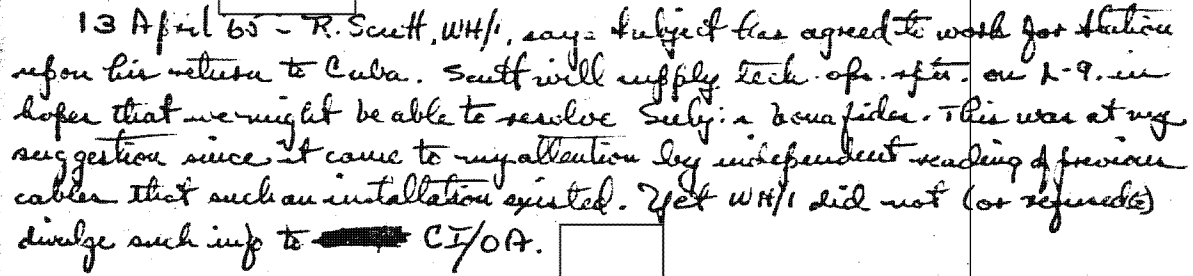 13 April 65 - R. Scutt, WH/1, says Subject has agreed to work for Station
upon his return to Cuba. Scutt will supply tech. ops. rpts. on L-9. in
hopes that we might be able to resolve Subj's bona fides. This was at my
suggestion since it came to my attention by independent reading of previous
cables that such an installation existed. Yet WH/1 did not (or refused to)
divulge such info to CI/OA.